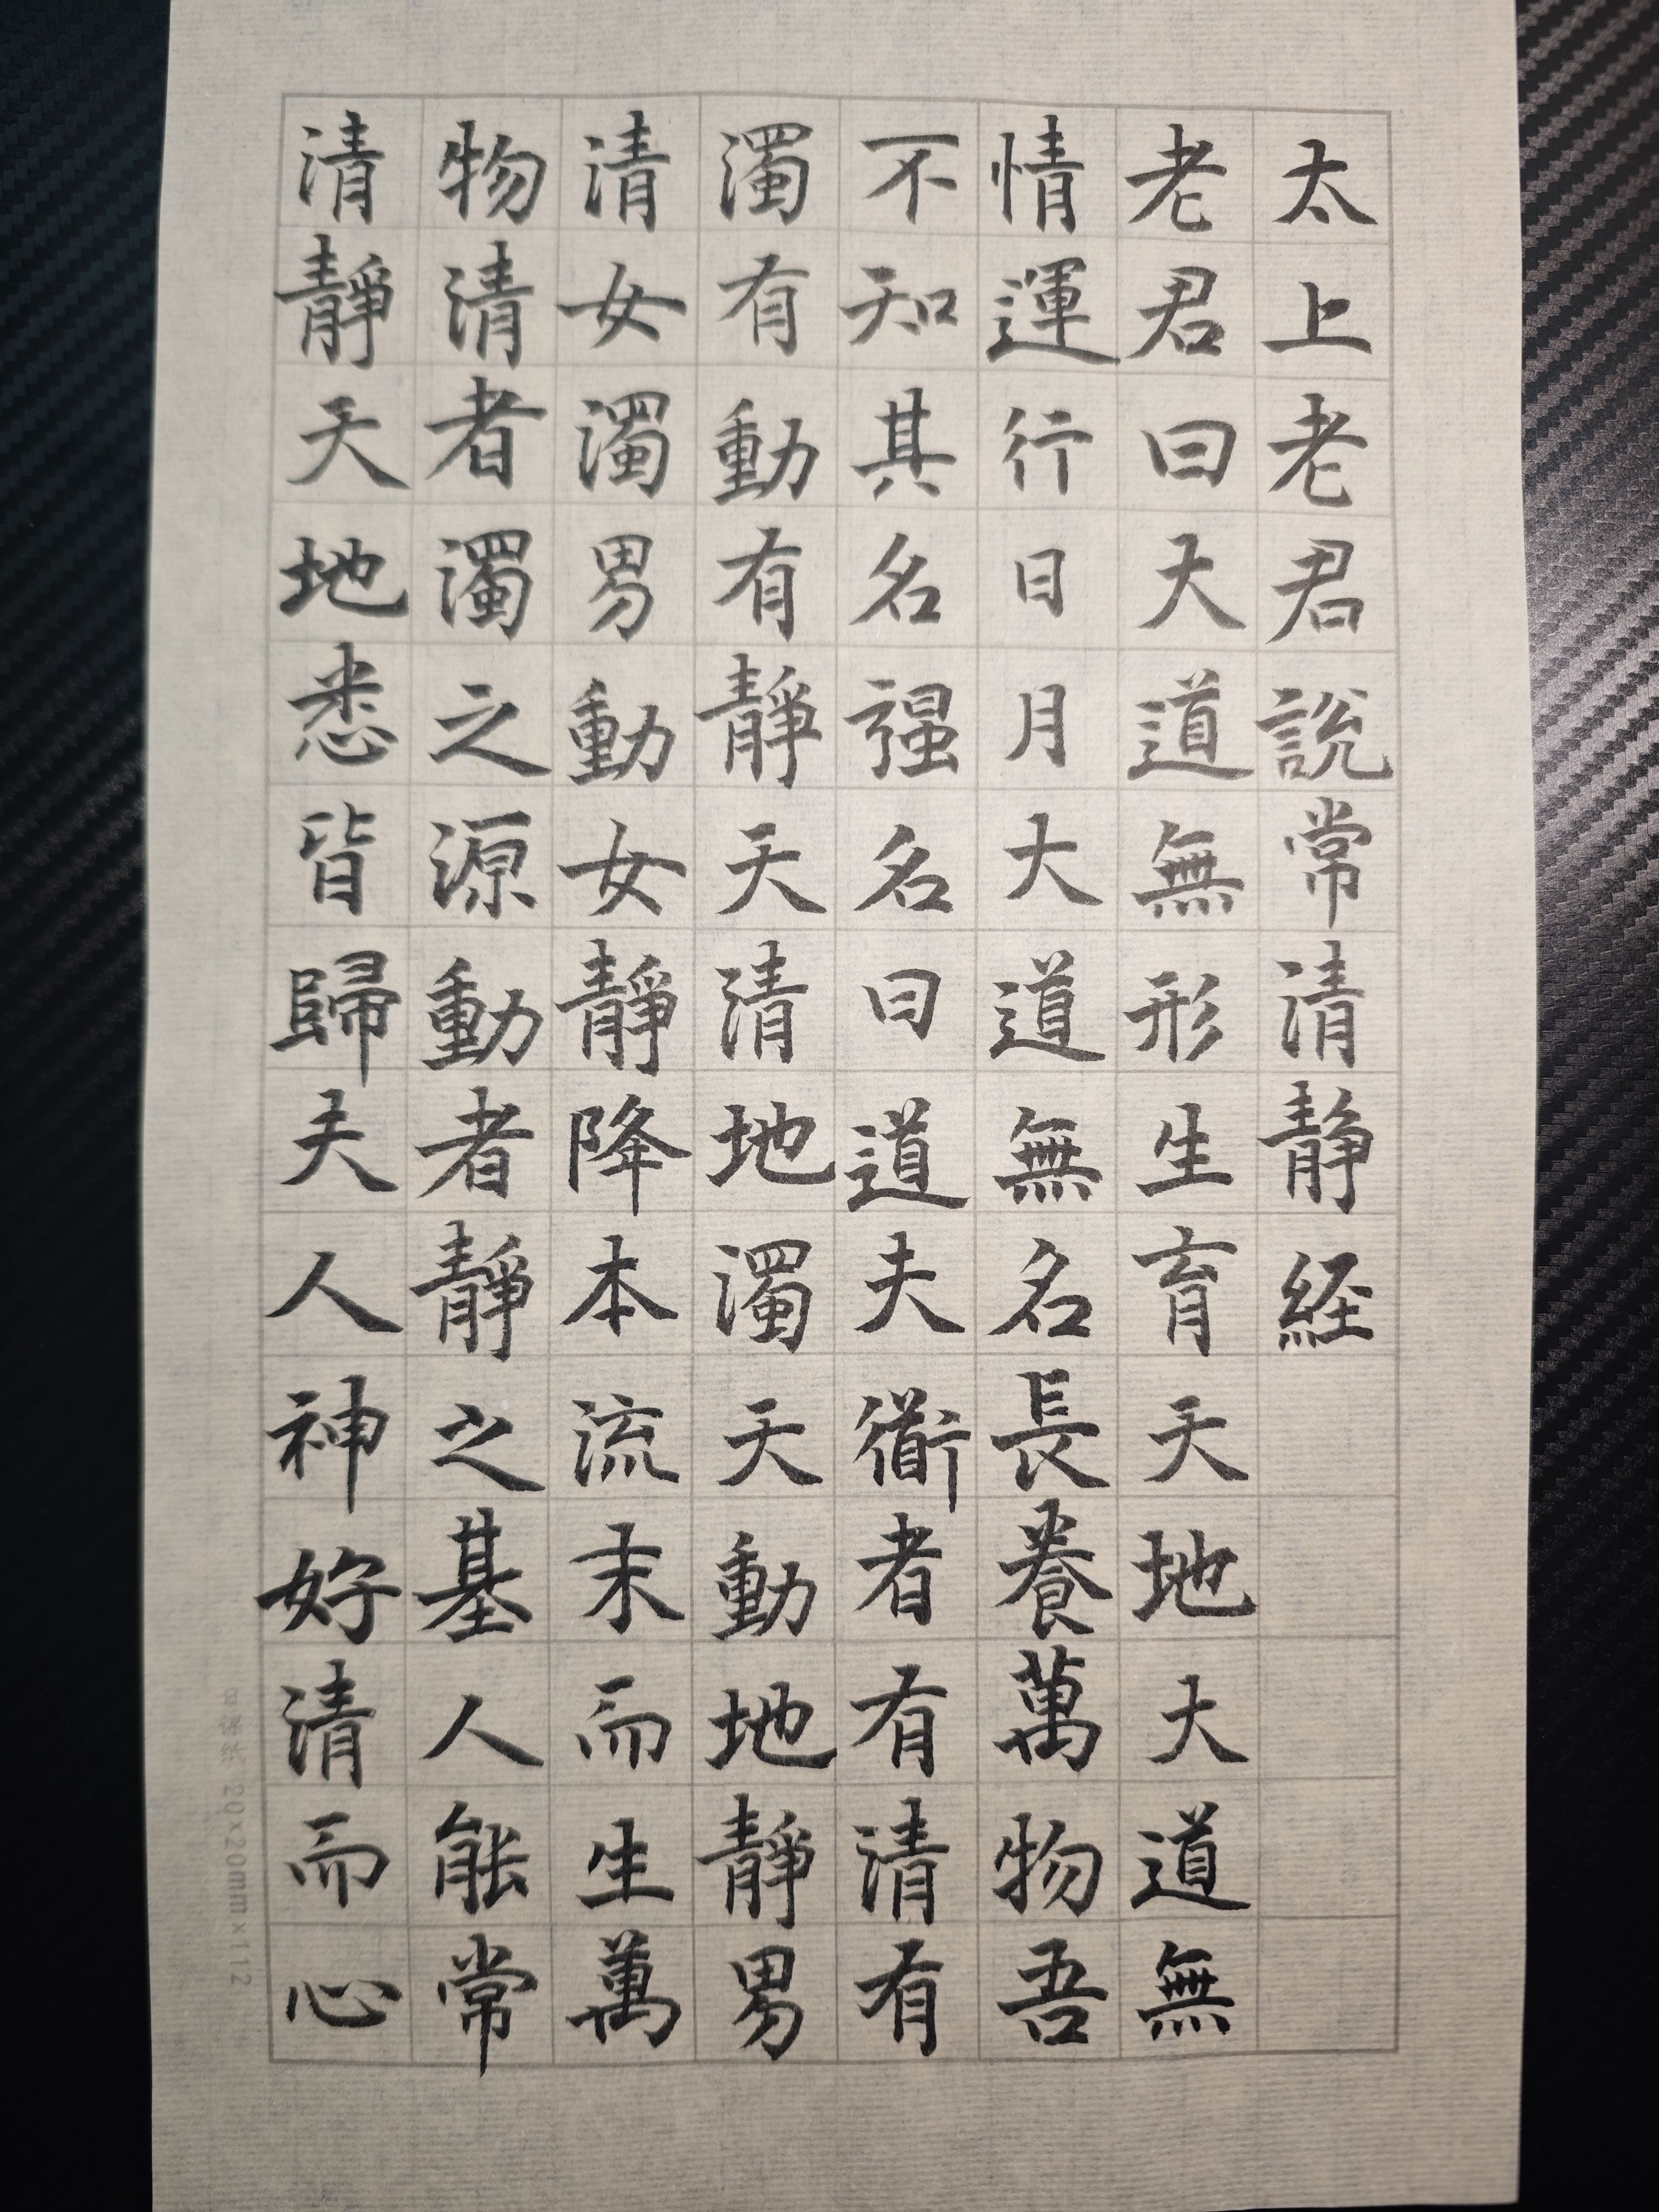 太上老君說常清静経
老君曰大道無形生育天地大道無
情運行日月大道無名長養萬物吾
不知其名强名曰道夫衜者有清有
濁有動有靜天清地濁天動地靜男
清女濁男動女靜降本流末而生萬
物清者濁之源動者靜之基人能常
清靜天地悉皆歸夫人神好清而心
20×20mm×112